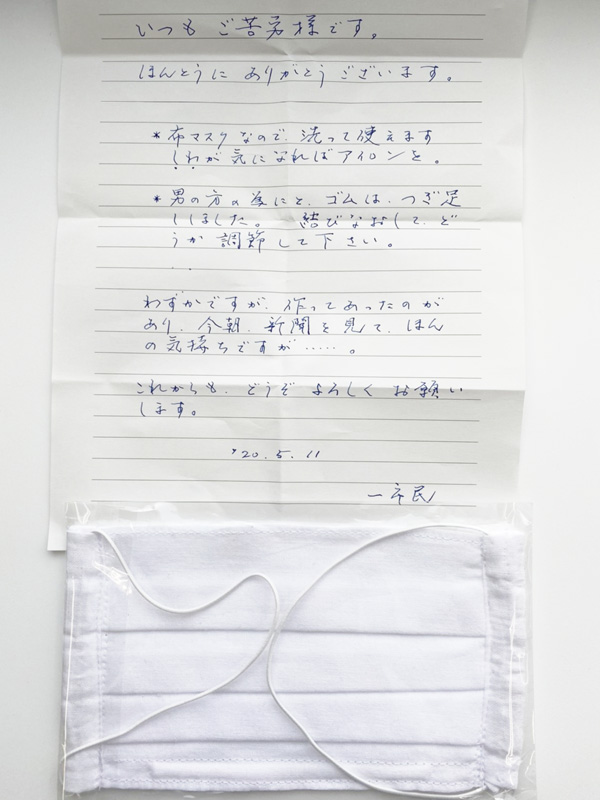 いつも ご苦労様です。
ほんとうに ありがとう ございます。
* 布マスクなので、洗って使えます
しわが気になればアイロンを。
* 男の方の為にと、ゴムは、つぎ足
ししました。 結びなおして、ど
うか 調節して下さい。
わずかですが、作ってあったのが
あり、今朝、新聞を見て、ほん
の気持ちですが……。
これからも、どうぞ よろしく お願い
します。
'20.5.11
一市民